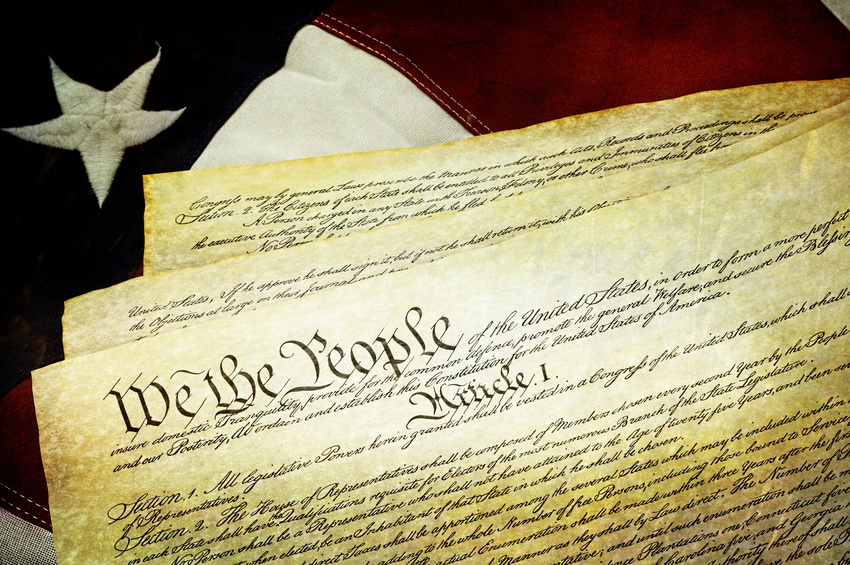 Congress may by general Laws prescribe the Manner in which such Acts, Records and Proceedings shall be
Section. 2. The Citizens of each State shall be entitled to all Privileges and Immunities of Citizens in th
A Person charged in any State with Treason, Felony, or other Crime, who shall flee
the executive Authority of the State from which he fled
No Person
United States; If he approve he shall sign it, but if not he shall return it, with his
the Objections at large on their Journal, and
We the People of the United States, in order to form a more perfect
insure domestic Tranquility, provide for the common defence, promote the general Welfare, and secure the Blessing
and our Posterity, do ordain and establish this Constitution for the United States of America.
Article. I.
Section. 1. All legislative Powers herein granted shall be vested in a Congress of the United States, which shall
of Representatives.
Section. 2. The House of Representatives shall be composed of Members chosen every second Year by the People
in each State shall have Qualifications requisite for Electors of the most numerous Branch of the State Legislature.
No Person shall be a Representative who shall not have attained to the Age of twenty five Years, and been
when elected, be an Inhabitant of that State in which he shall be chosen.
direct Taxes shall be apportioned among the several States which may be included within
adding to the whole Number of free Persons, including those bound to Service
actual Enumeration shall be made within three Years after the first
Manner as they shall by Law direct. The Number of
and until such enumeration shall be
Plantations one, Connecticut five
Carolina five, and Georgia
Authority thereof shall